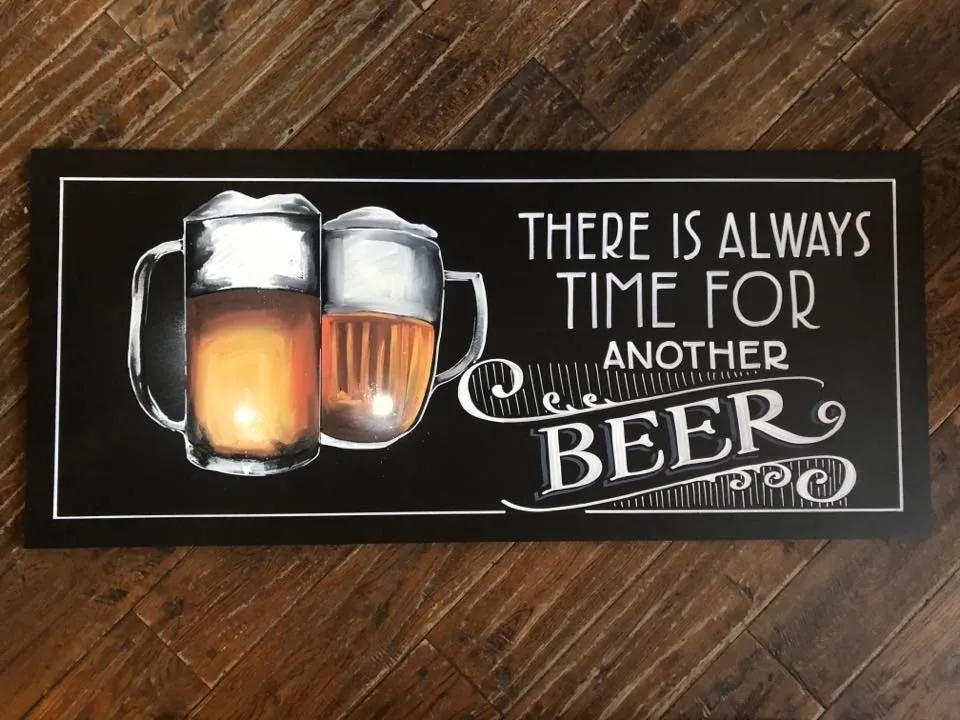 THERE IS ALWAYS
TIME FOR
ANOTHER
BEER